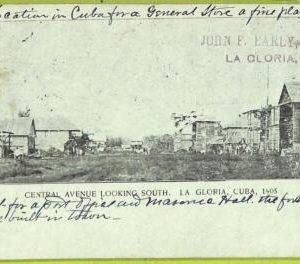 ocation in Cuba for a General Store a fine pla
JOHN F. EARLY
LA GLORIA,
CENTRAL AVENUE LOOKING SOUTH. LA GLORIA, CUBA, 1905
for a Post Office and Masonic Hall. the fir
built in town